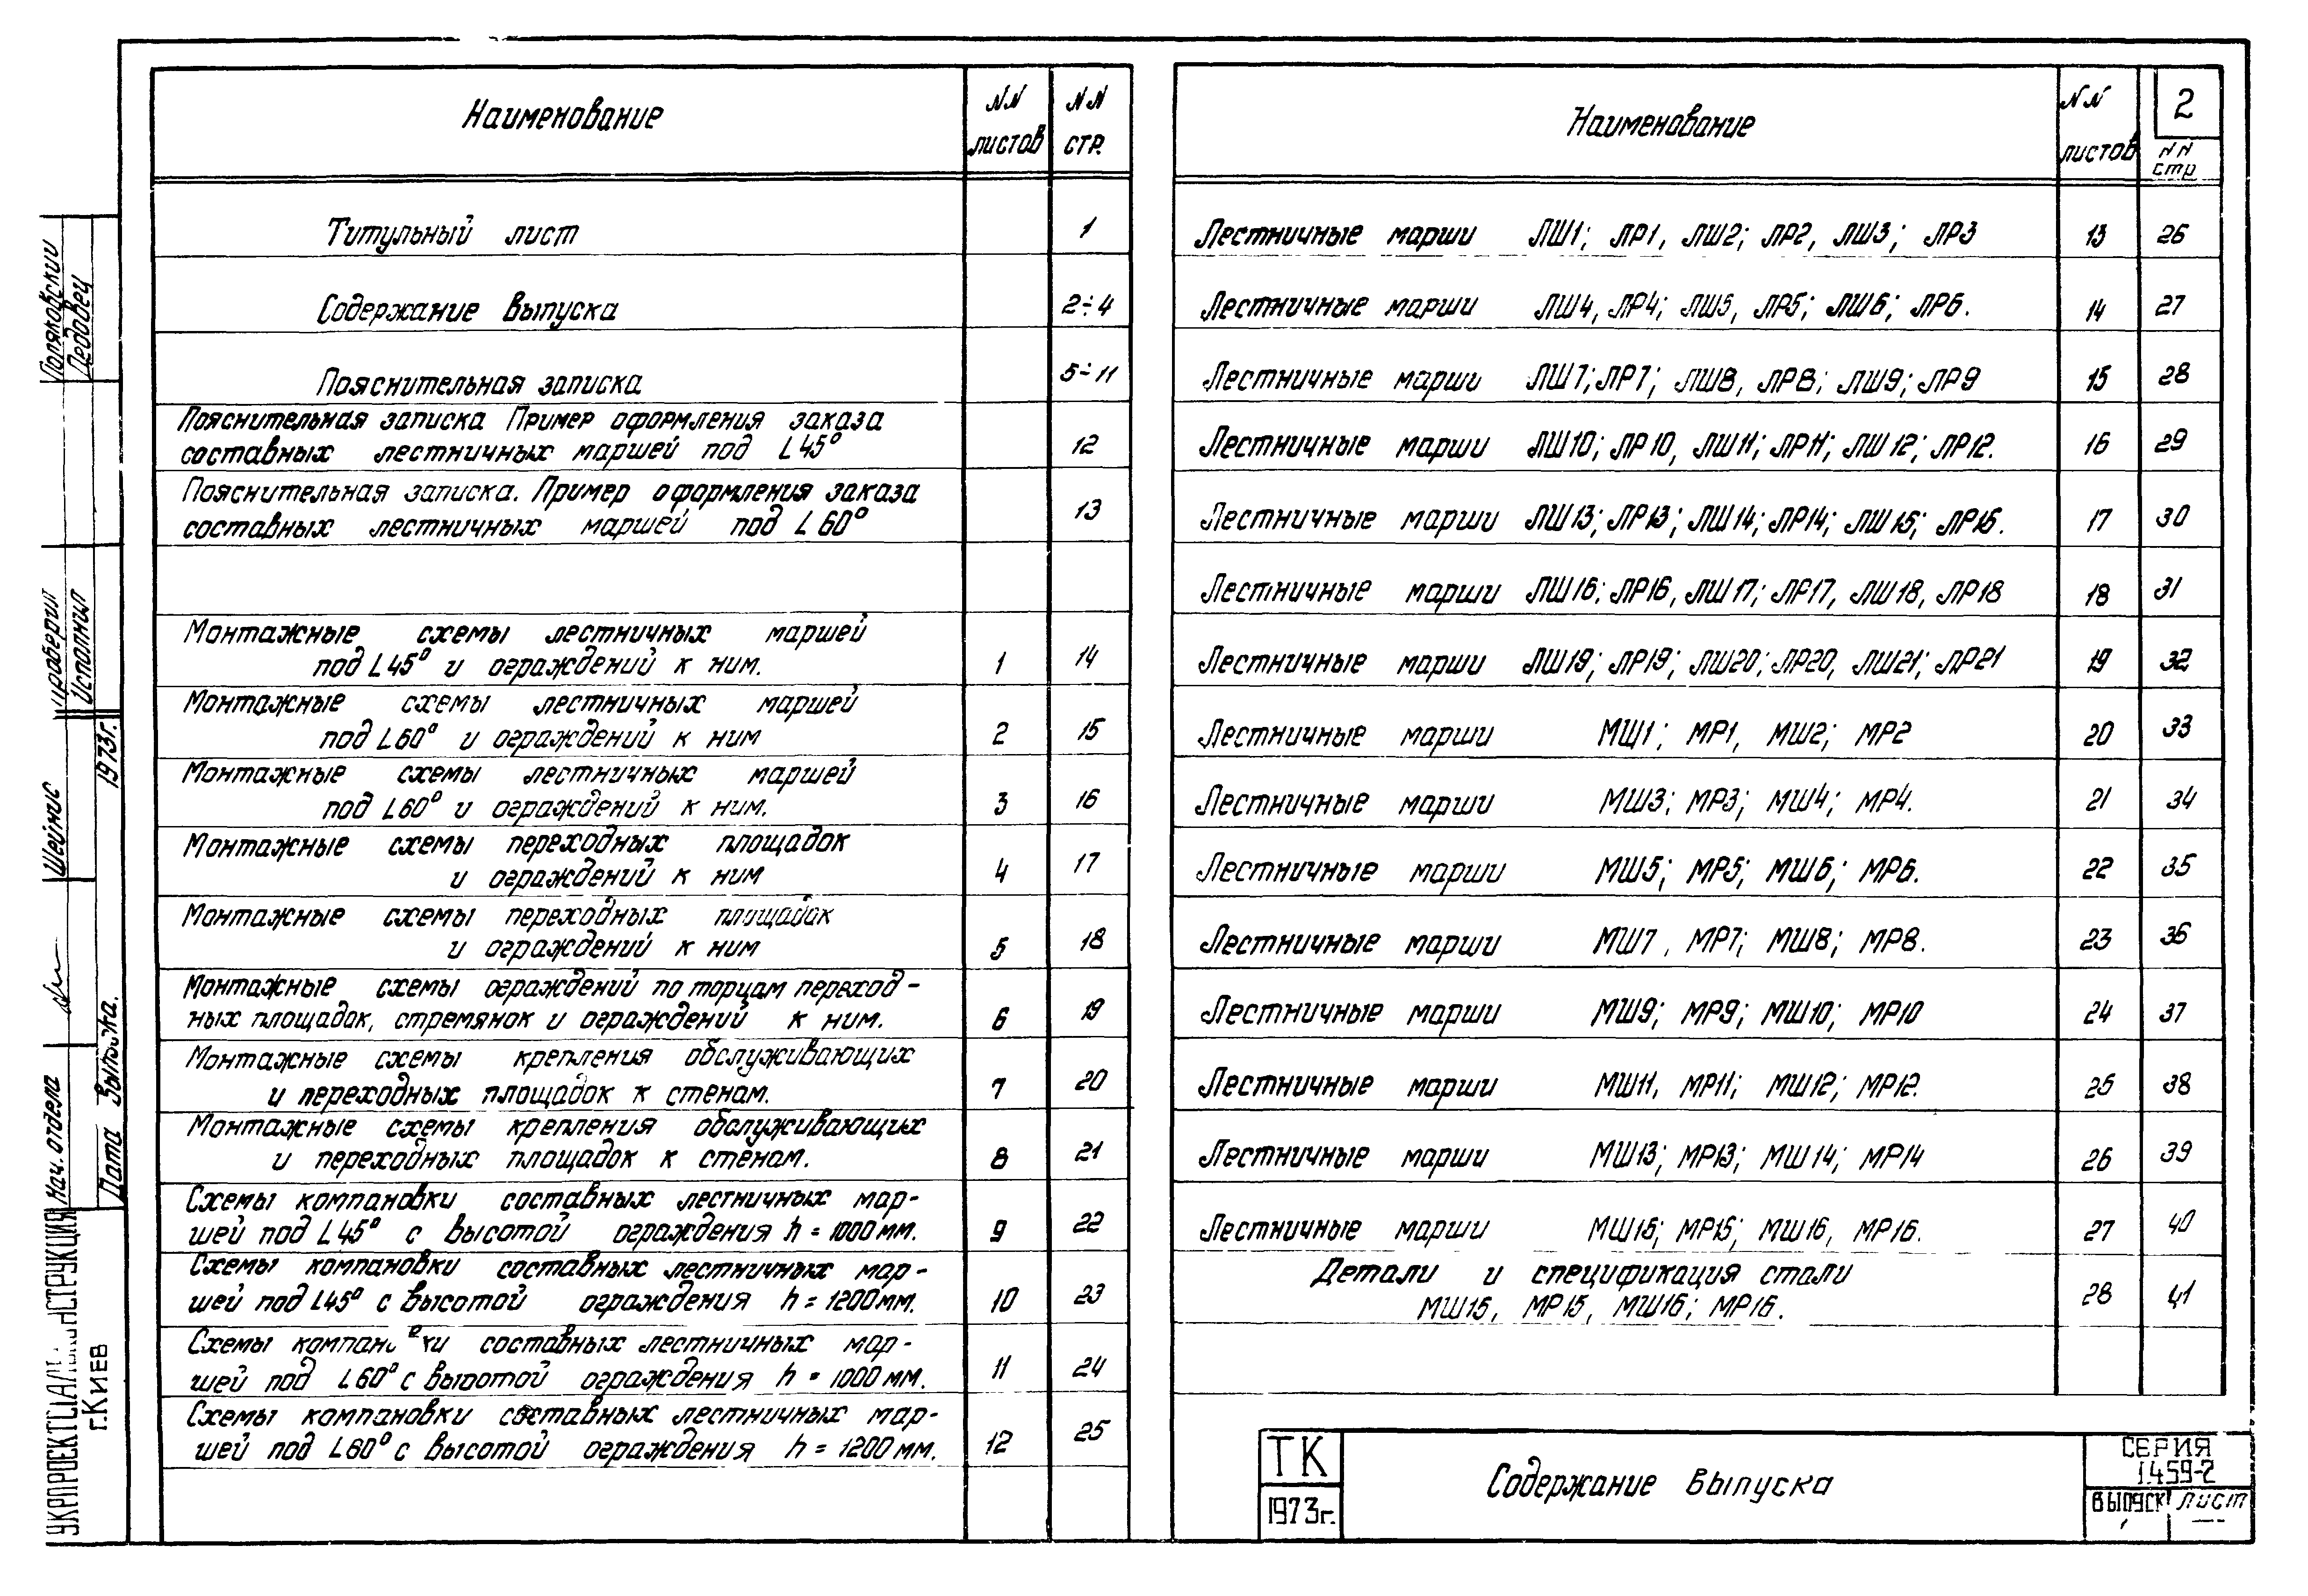 Наименование
NN листов
NN стр.
Титульный лист 1
Содержание выпуска 2÷4
Пояснительная записка 5÷11
Пояснительная записка Пример оформления заказа
составных лестничных маршей под L45° 12
Пояснительная записка. Пример оформления заказа
составных лестничных маршей под L60° 13
Монтажные схемы лестничных маршей
под L45° и ограждений к ним. 1 14
Монтажные схемы лестничных маршей
под L60° и ограждений к ним 2 15
Монтажные схемы лестничных маршей
под L60° и ограждений к ним. 3 16
Монтажные схемы переходных площадок
и ограждений к ним 4 17
Монтажные схемы переходных площадок
и ограждений к ним 5 18
Монтажные схемы ограждений по торцам переход-
ных площадок, стремянок и ограждений к ним. 6 19
Монтажные схемы крепления обслуживающих
и переходных площадок к стенам. 7 20
Монтажные схемы крепления обслуживающих
и переходных площадок к стенам. 8 21
Схемы компановки составных лестничных мар-
шей под L45° с высотой ограждения h = 1000 мм. 9 22
Схемы компановки составных лестничных мар-
шей под L45° с высотой ограждения h = 1200 мм. 10 23
Схемы компановки составных лестничных мар-
шей под L60° с высотой ограждения h = 1000 мм. 11 24
Схемы компановки составных лестничных мар-
шей под L60° с высотой ограждения h = 1200 мм. 12 25
Наименование
NN листов
2
NN стр
Лестничные марши ЛШ1; ЛР1, ЛШ2; ЛР2, ЛШ3; ЛР3 13 26
Лестничные марши ЛШ4, ЛР4; ЛШ5, ЛР5; ЛШ6; ЛР6. 14 27
Лестничные марши ЛШ7; ЛР7; ЛШ8, ЛР8; ЛШ9; ЛР9 15 28
Лестничные марши ЛШ10; ЛР10, ЛШ11; ЛР11; ЛШ12; ЛР12. 16 29
Лестничные марши ЛШ13; ЛР13; ЛШ14; ЛР14; ЛШ15; ЛР15. 17 30
Лестничные марши ЛШ16; ЛР16, ЛШ17; ЛР17, ЛШ18, ЛР18 18 31
Лестничные марши ЛШ19; ЛР19; ЛШ20; ЛР20, ЛШ21; ЛР21 19 32
Лестничные марши МЩ1; МР1, МШ2; МР2 20 33
Лестничные марши МШ3; МР3; МШ4; МР4. 21 34
Лестничные марши МШ5; МР5; МШ6; МР6. 22 35
Лестничные марши МШ7, МР7; МШ8; МР8. 23 36
Лестничные марши МШ9; МР9; МШ10; МР10 24 37
Лестничные марши МШ11, МР11; МШ12; МР12. 25 38
Лестничные марши МШ13; МР13; МШ14; МР14 26 39
Лестничные марши МШ15; МР15; МШ16, МР16. 27 40
Детали и спецификация стали
МШ15, МР15, МШ16; МР16. 28 41
ТК
1973г.
Содержание выпуска
СЕРИЯ
1.459-2
ВЫПУСК лист
Поляковский
Дедовец
проверил
Исполнил
Шейнис
1973г.
Нач. отдела
Дата
г. КИЕВ